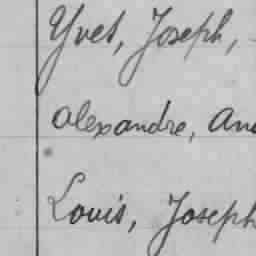 Yves, Joseph,
Alexandre, An
Louis, Joseph